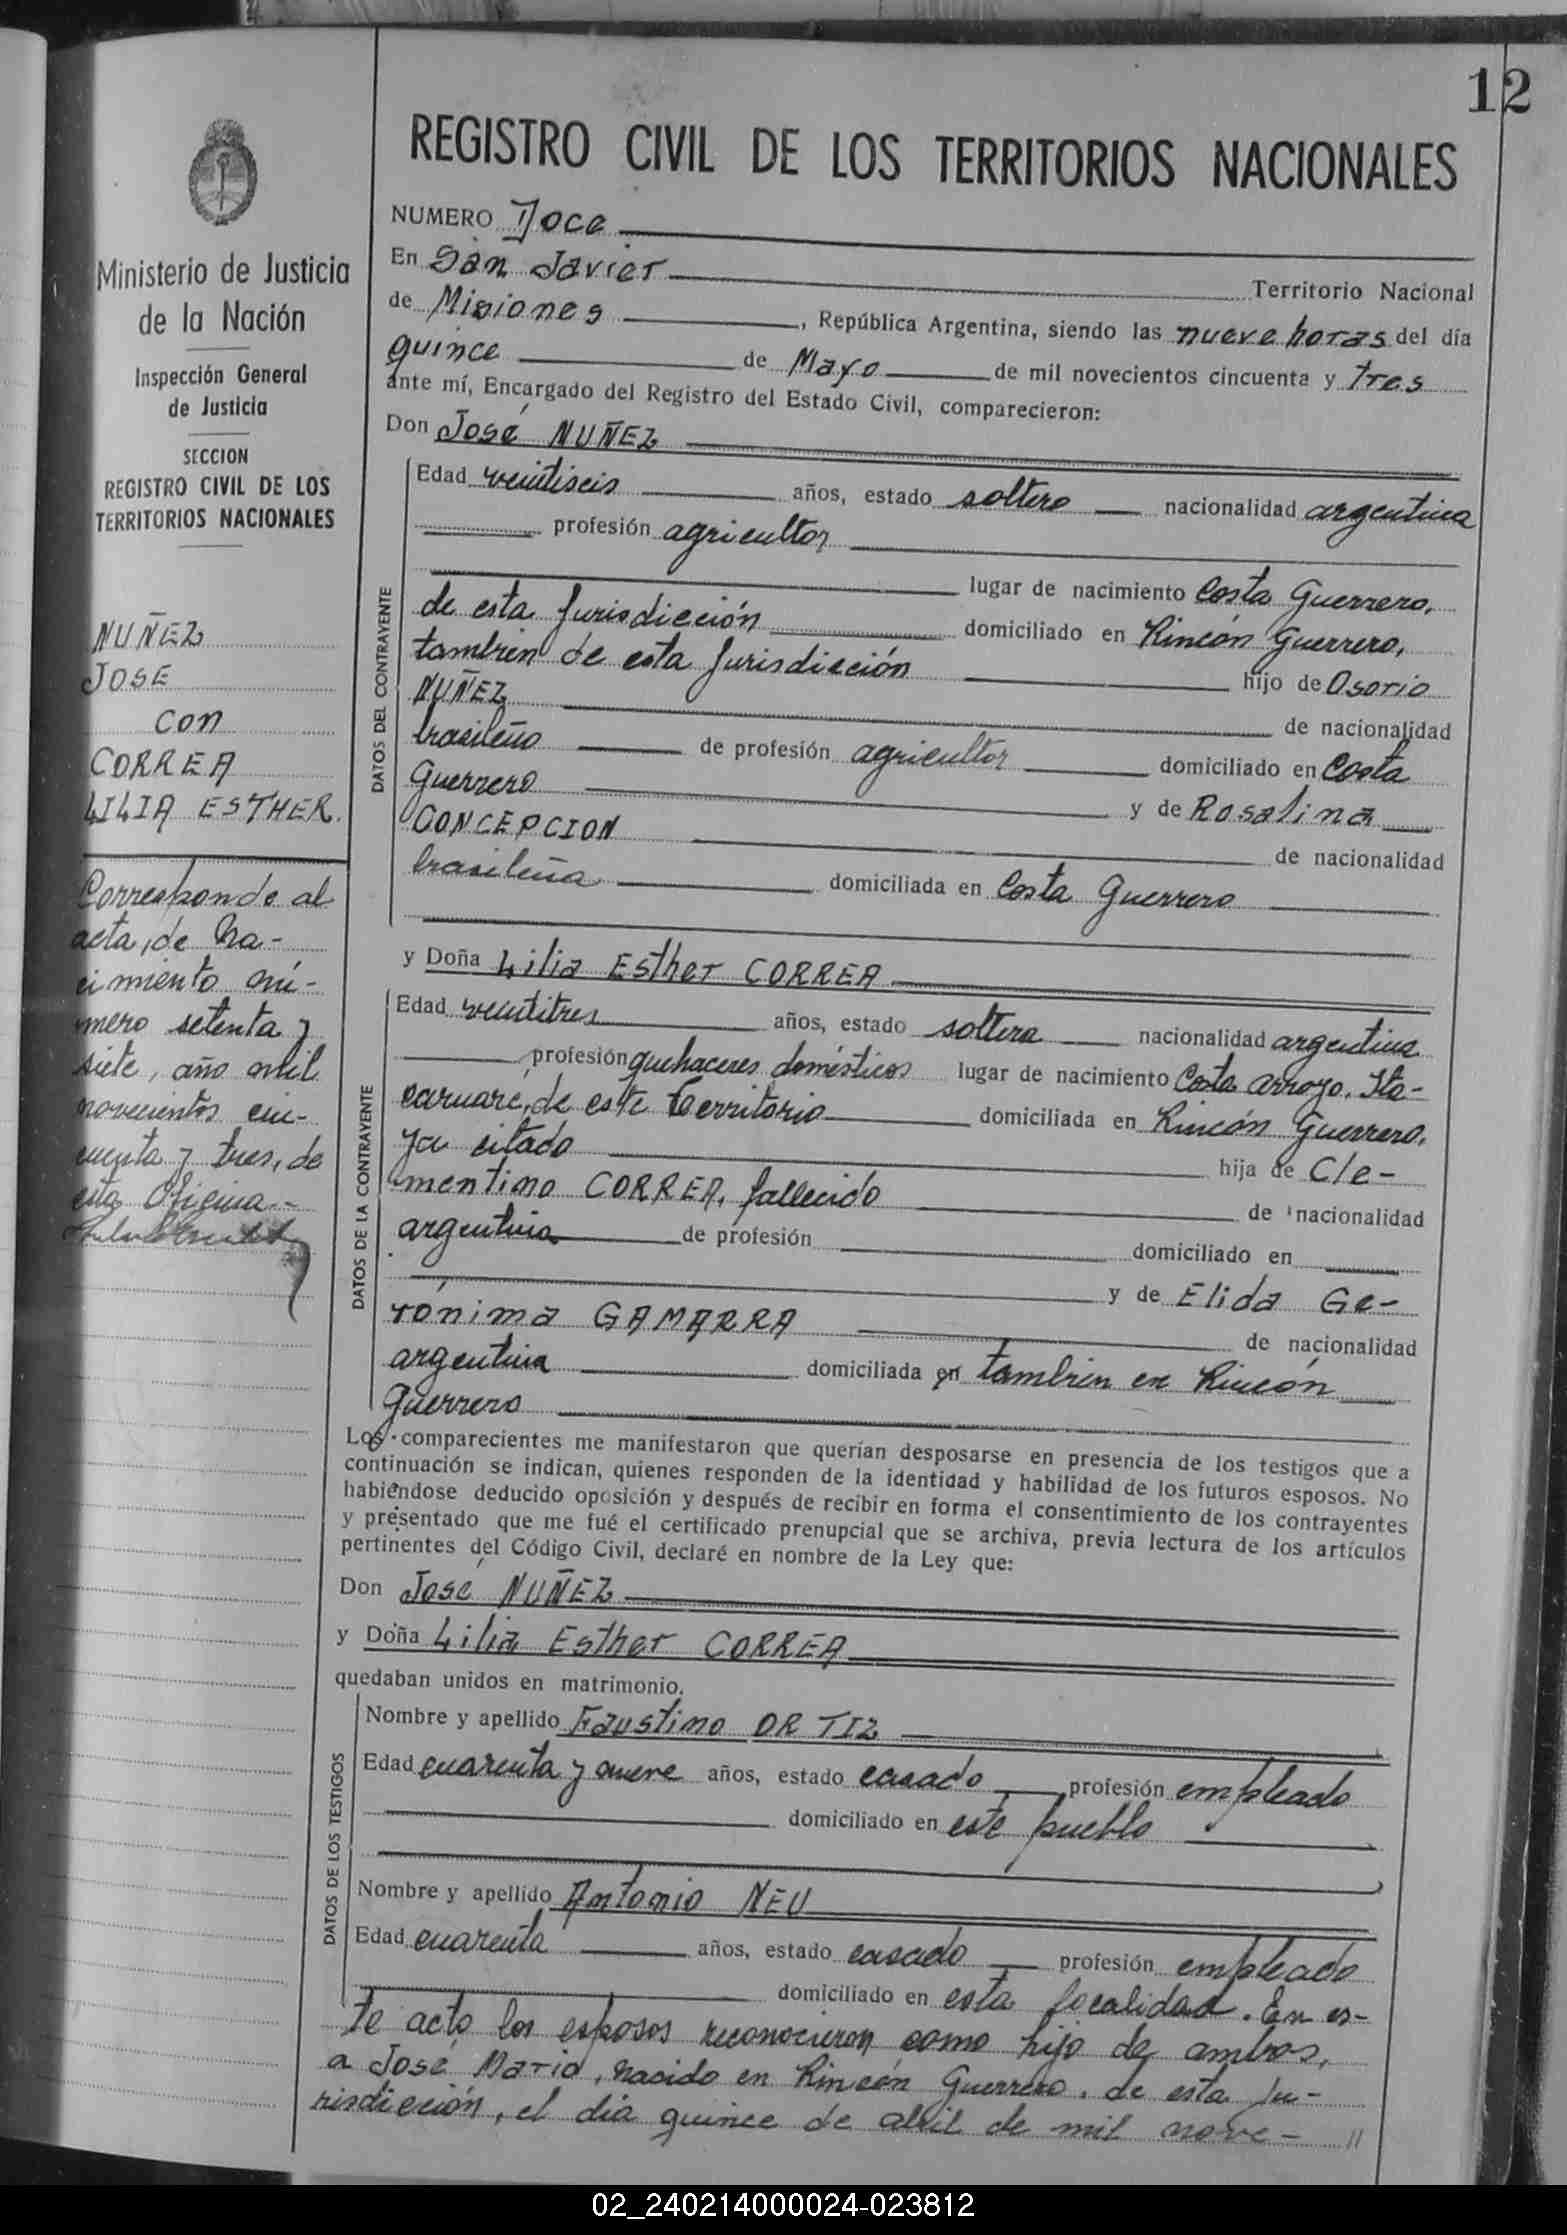 12
REGISTRO CIVIL DE LOS TERRITORIOS NACIONALES
Ministerio de Justicia
de la Nación
Inspección General
de Justicia
SECCION
REGISTRO CIVIL DE LOS
TERRITORIOS NACIONALES
NUÑEZ
JOSE
con
CORREA
LILIA ESTHER
Corresponde al
acta, de Na-
cimiento nú-
mero setenta y
siete, año mil
novecientos cin-
cuenta y tres, de
esta Oficina.-
NUMERO Doce
En San Javier Territorio Nacional
de Misiones, República Argentina, siendo las nueve horas del día
quince de Mayo de mil novecientos cincuenta y tres
ante mí, Encargado del Registro del Estado Civil, comparecieron:
Don José NUÑEZ
DATOS DEL CONTRAYENTE
Edad veintiseis años, estado soltero nacionalidad argentina
profesión agricultor
lugar de nacimiento Costa Guerrero,
de esta Jurisdicción domiciliado en Rincón Guerrero,
también de esta Jurisdicción hijo de Osorio
NUÑEZ de nacionalidad
brasileño de profesión agricultor domiciliado en Costa
Guerrero y de Rosalina
CONCEPCION de nacionalidad
brasileña domiciliada en Costa Guerrero
y Doña Lilia Esther CORREA
DATOS DE LA CONTRAYENTE
Edad veintitres años, estado soltera nacionalidad argentina
profesión quehaceres domésticos lugar de nacimiento Costa arroyo, Ita-
caruaré, de este Territorio domiciliada en Rincón Guerrero,
ya citado hija de Cle-
mentino CORREA, fallecido de nacionalidad
argentina de profesión domiciliado en
y de Elida Ge-
rónima GAMARRA de nacionalidad
argentina domiciliada en también en Rincón
Guerrero
Los comparecientes me manifestaron que querían desposarse en presencia de los testigos que a
continuación se indican, quienes responden de la identidad y habilidad de los futuros esposos. No
habiéndose deducido oposición y después de recibir en forma el consentimiento de los contrayentes
y presentado que me fué el certificado prenupcial que se archiva, previa lectura de los artículos
pertinentes del Código Civil, declaré en nombre de la Ley que:
Don José NUÑEZ
y Doña Lilia Esther CORREA
quedaban unidos en matrimonio.
DATOS DE LOS TESTIGOS
Nombre y apellido Faustino ORTIZ
Edad cuarenta y nueve años, estado casado profesión empleado
domiciliado en este pueblo
Nombre y apellido Antonio NEU
Edad cuarenta años, estado casado profesión empleado
domiciliado en esta localidad. En es-
te acto los esposos reconocieron como hijo de ambos,
a José Mario, nacido en Rincón Guerrero, de esta Ju-
risdicción, el día quince de abril de mil nove- //
02_240214000024-023812